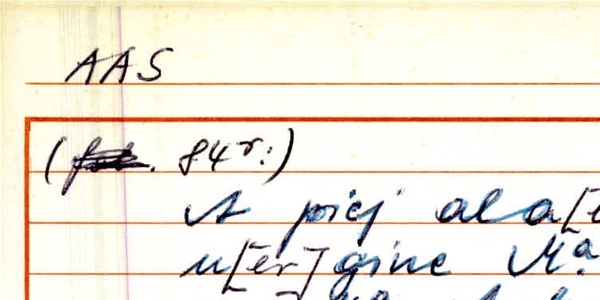 AAS
(fol. 84r:)
A piej al a[
u[er]gine Ma